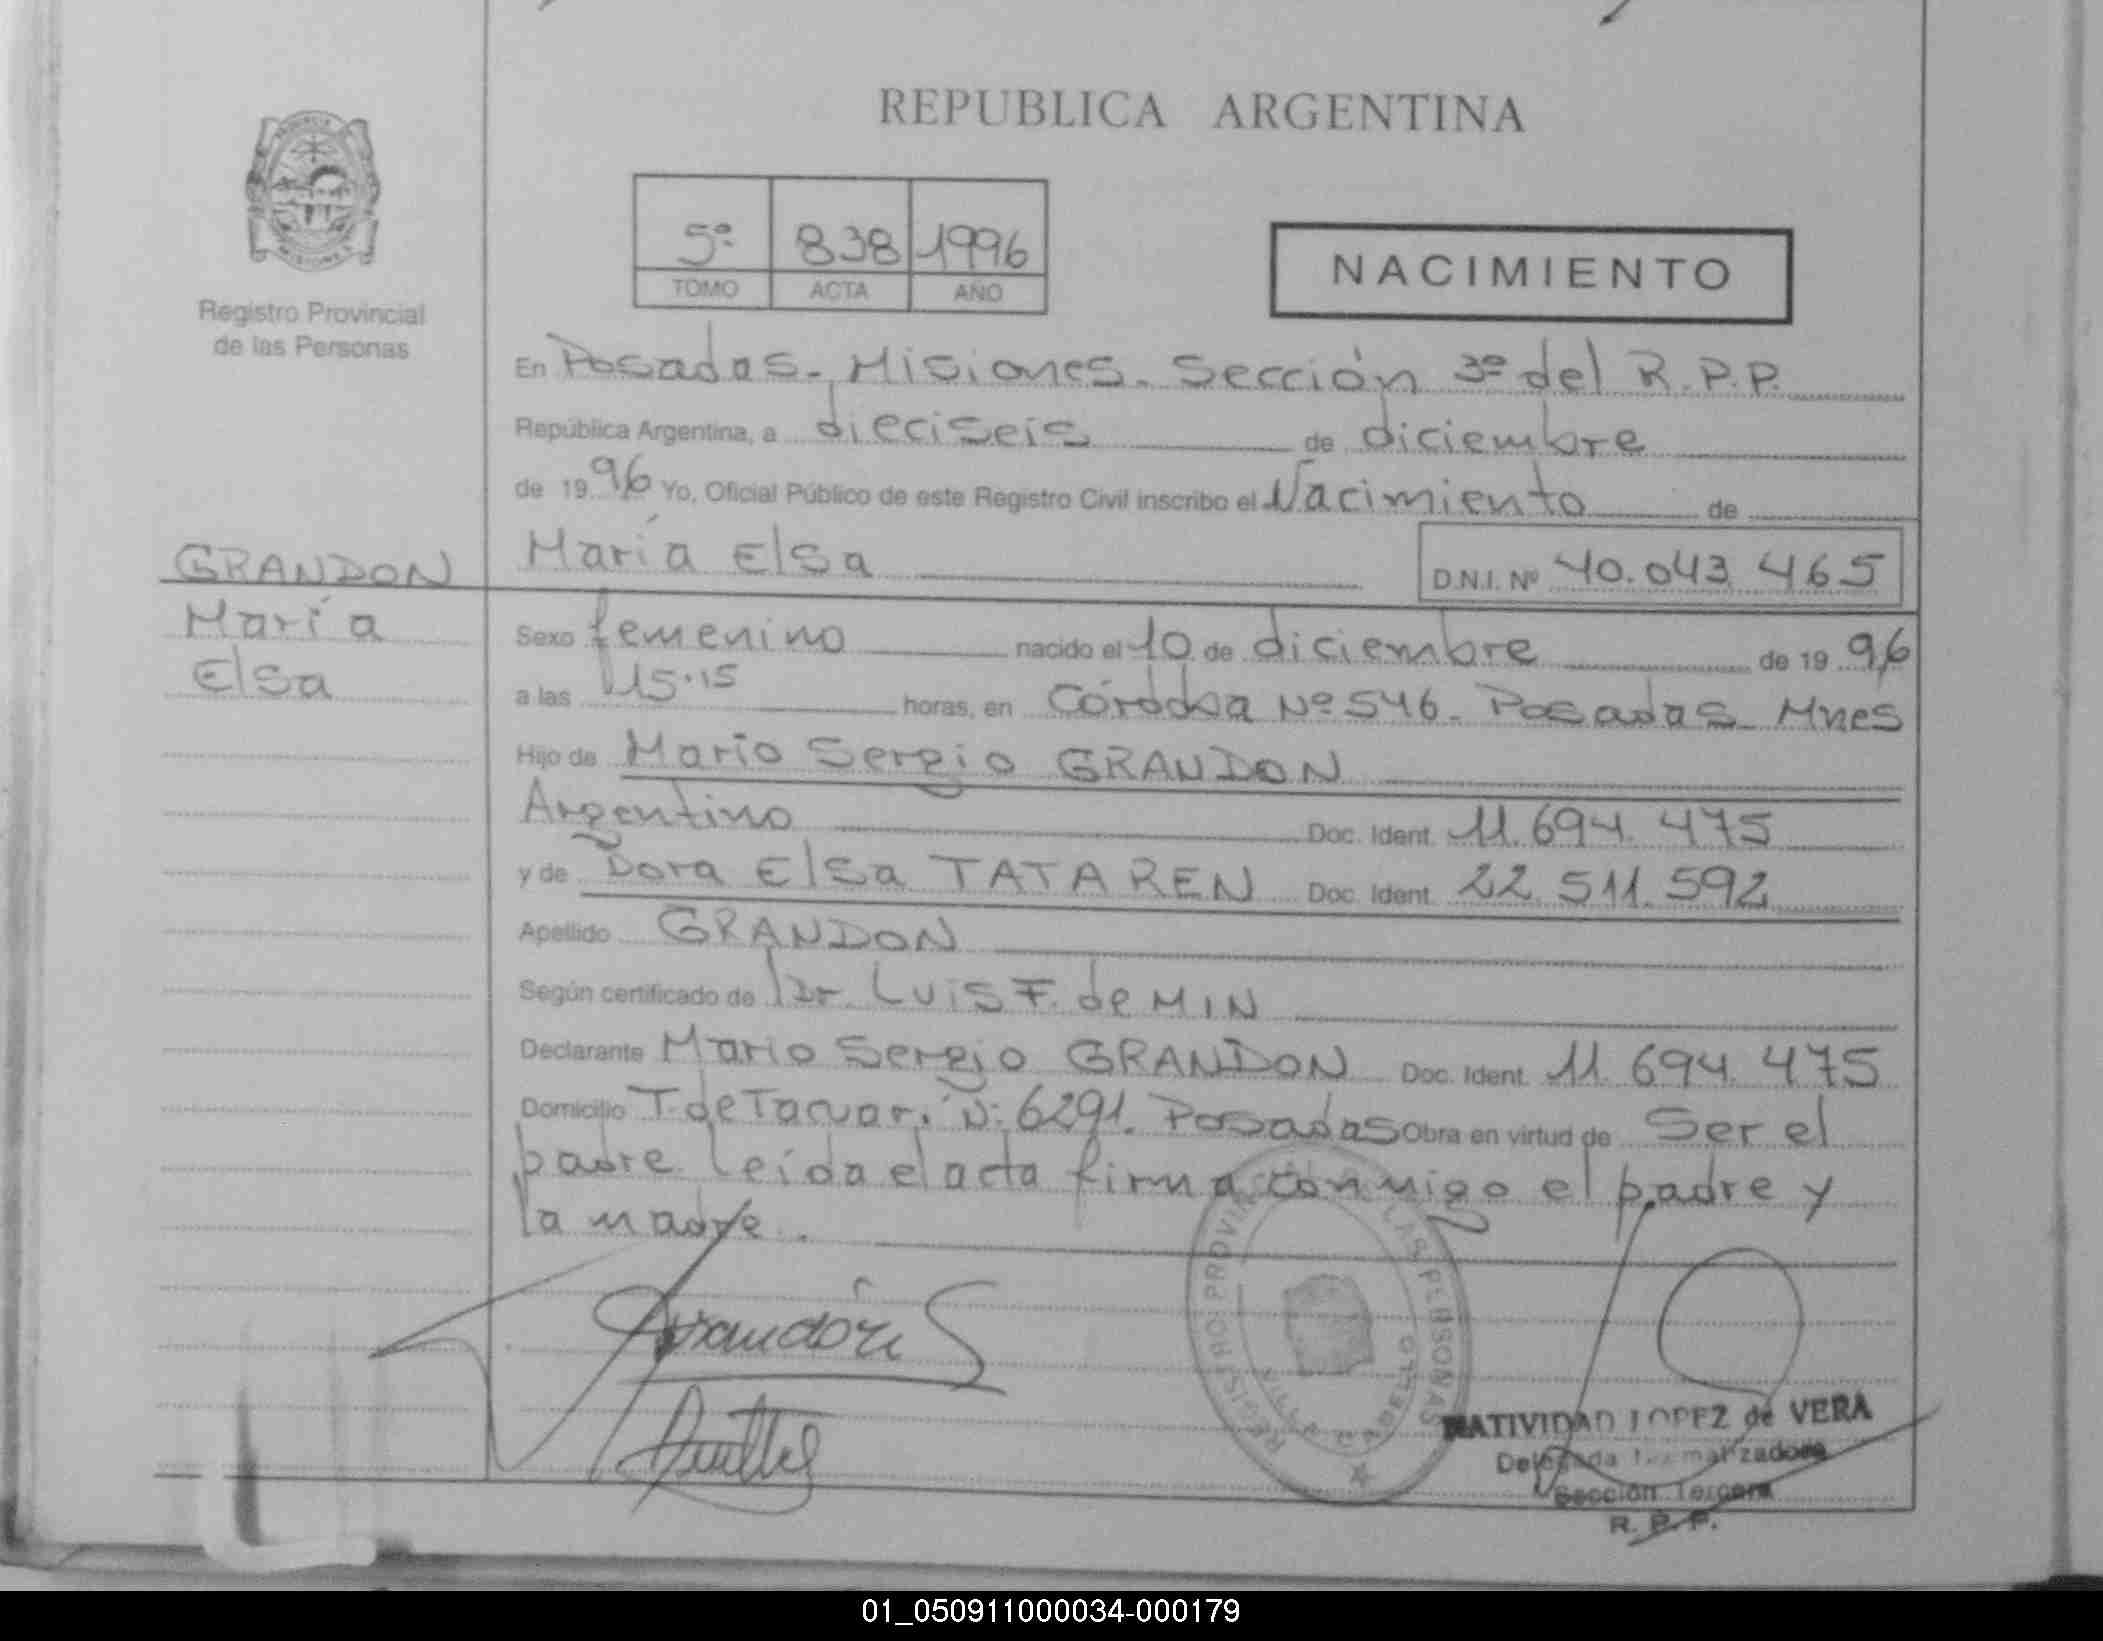 REPUBLICA ARGENTINA
5º 838 1996
TOMO ACTA AÑO
NACIMIENTO
Registro Provincial
de las Personas
En Posadas - Misiones - Sección 3º del R.P.P.
República Argentina, a dieciseis de diciembre
de 1996 Yo, Oficial Público de este Registro Civil inscribo el Nacimiento de
GRANDON María Elsa D.N.I. Nº 40.043.465
María
Elsa
Sexo femenino nacido el 10 de diciembre de 1996
a las 15.15 horas, en Córdoba Nº 546 - Posadas - Mnes
Hijo de Mario Sergio GRANDON
Argentino Doc. Ident. 11.694.475
y de Dora Elsa TATAREN Doc. Ident. 22.511.592
Apellido GRANDON
Según certificado de Dr. Luis F. de MIN
Declarante Mario Sergio GRANDON Doc. Ident. 11.694.475
Domicilio T. de Tacuarí Nº 6291. Posadas Obra en virtud de Ser el
padre. Leída el acta firma conmigo el padre y
la madre.
REGISTRO PROVINCIAL DE LAS PERSONAS
Grandón S
NATIVIDAD LOPEZ de VERA
Delegada Normalizadora
Sección Tercera
R. P. P.
01_050911000034-000179